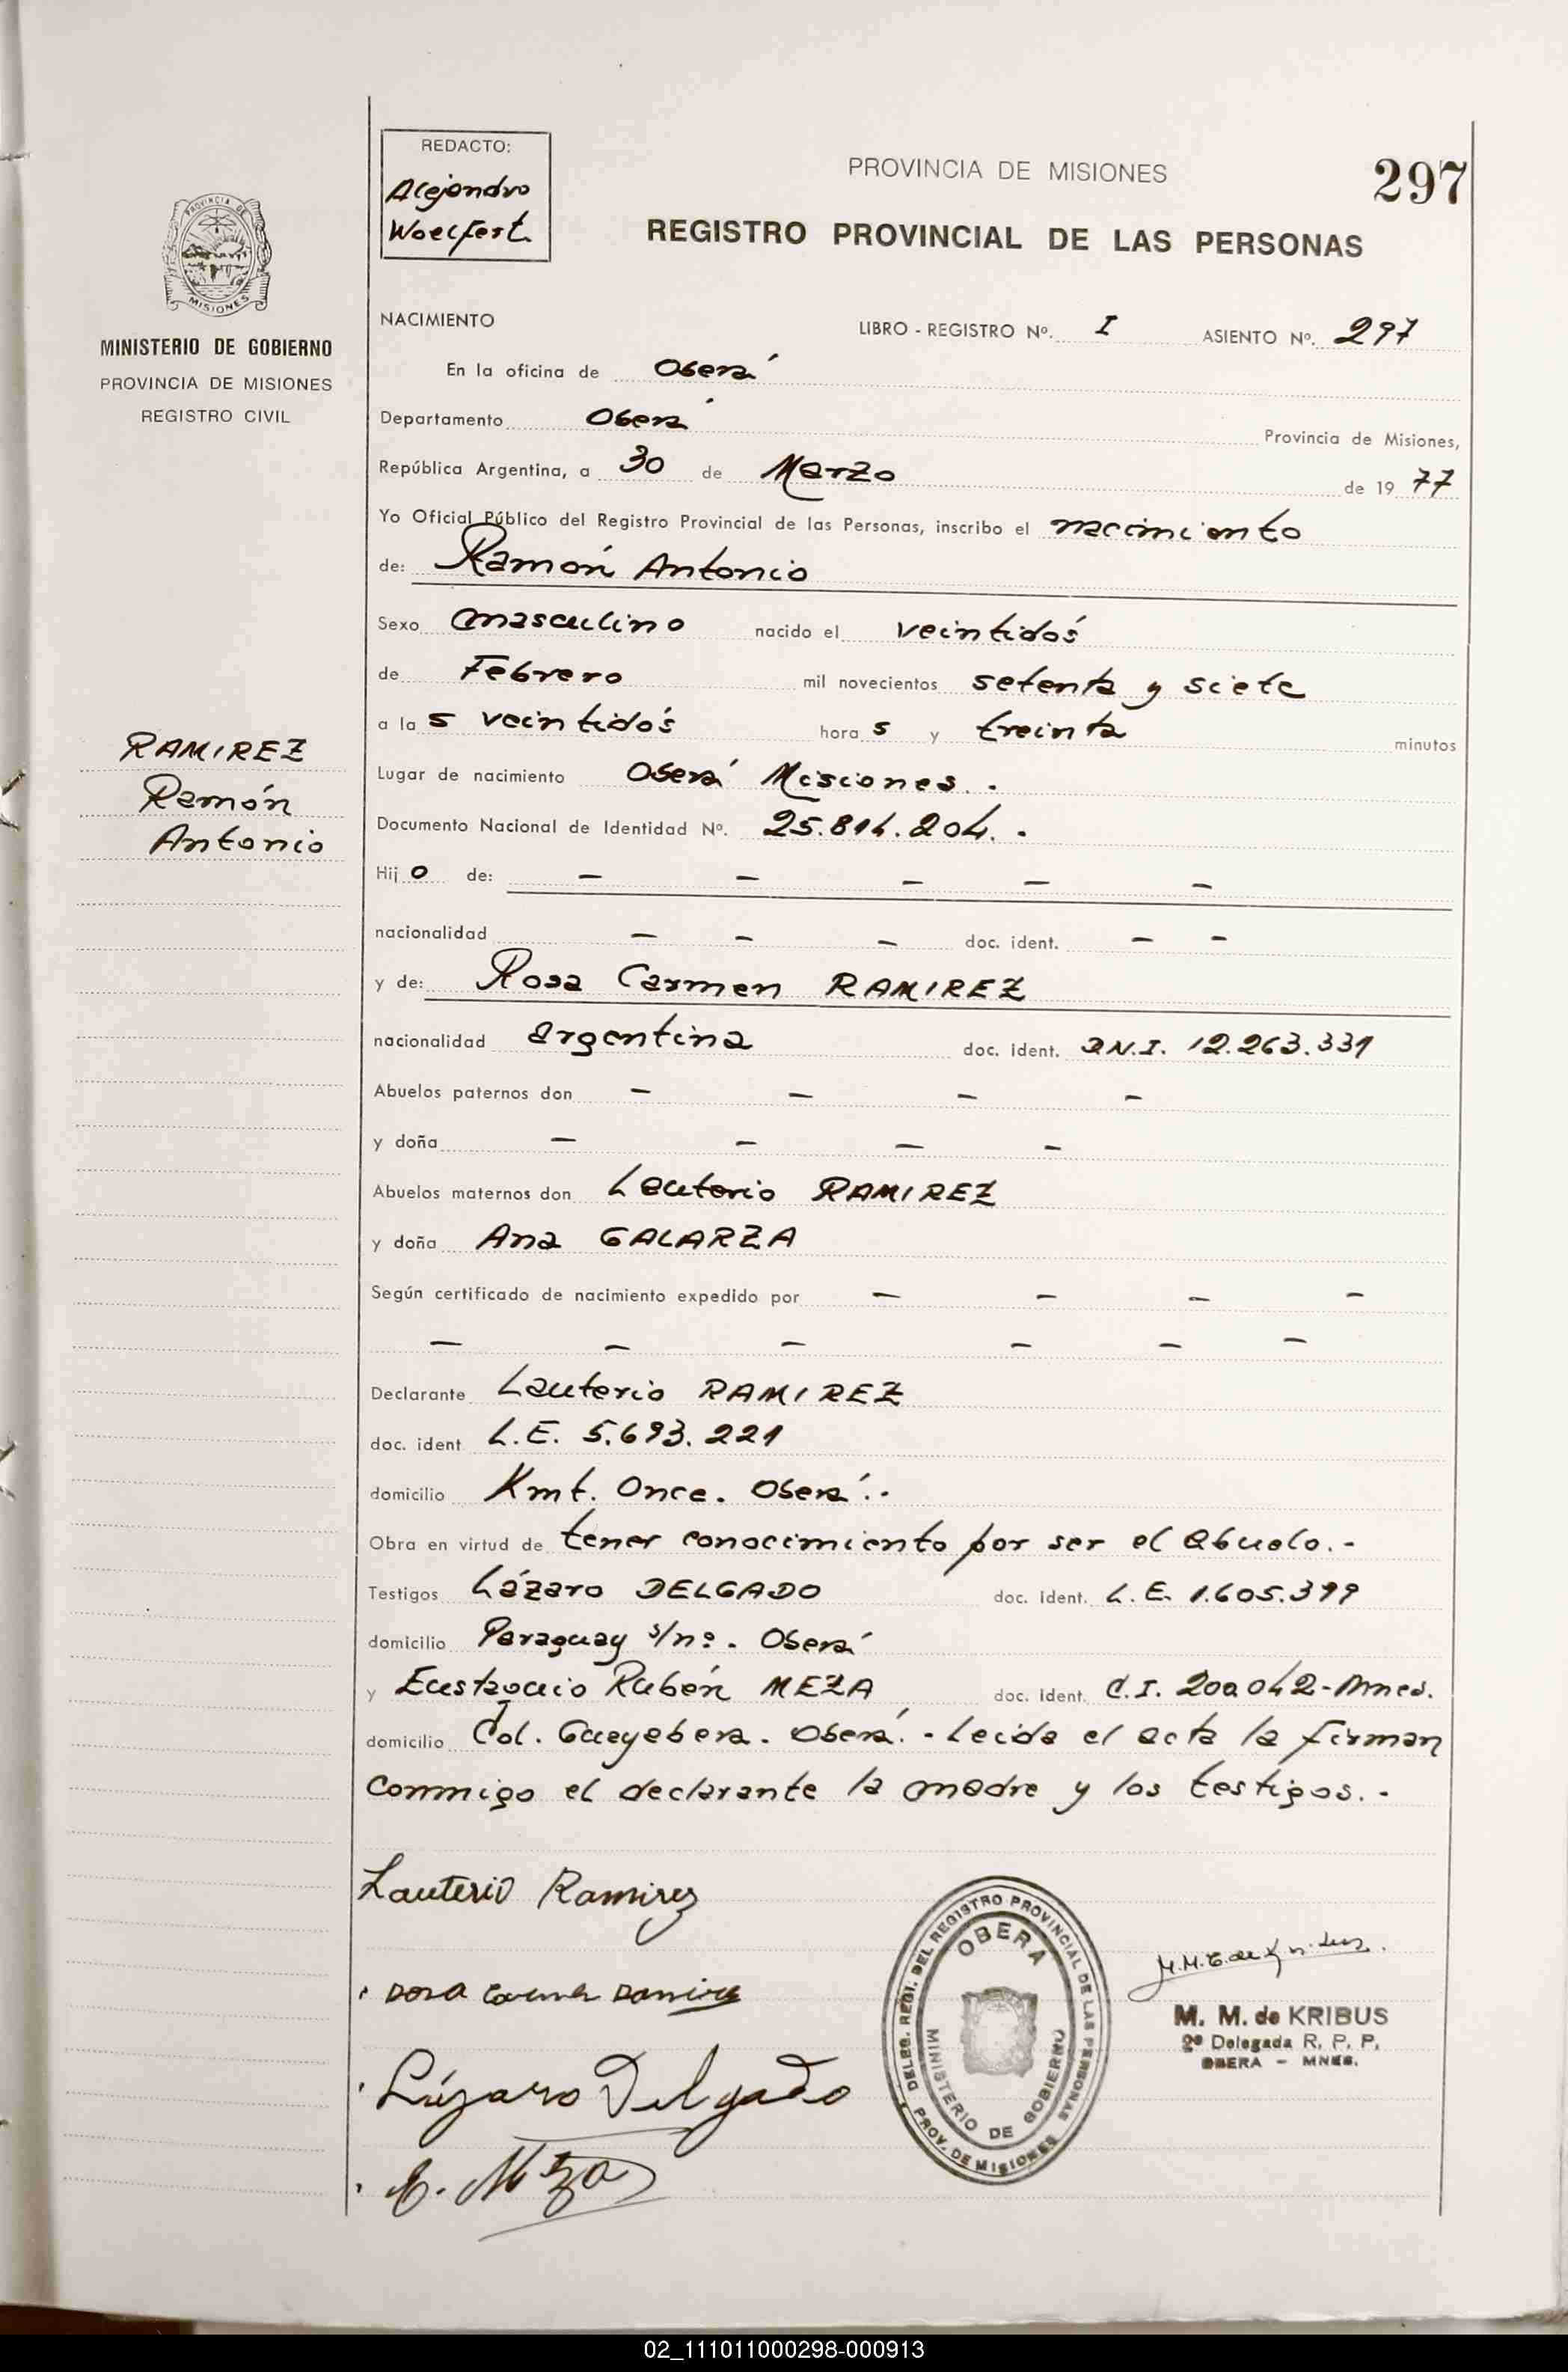 REDACTO:
Alejandro
Woelfert.
PROVINCIA DE MISIONES
297
REGISTRO PROVINCIAL DE LAS PERSONAS
PROVINCIA DE
MISIONES
MINISTERIO DE GOBIERNO
PROVINCIA DE MISIONES
REGISTRO CIVIL
NACIMIENTO
LIBRO - REGISTRO Nº. I ASIENTO Nº. 297
En la oficina de Oberá
Departamento Oberá Provincia de Misiones,
República Argentina, a 30 de Marzo de 19 77
Yo Oficial Público del Registro Provincial de las Personas, inscribo el nacimiento
de: Ramón Antonio
Sexo masculino nacido el veintidós
de Febrero mil novecientos setenta y siete
a la s veintidós hora s y treinta minutos
RAMIREZ
Ramón
Antonio
Lugar de nacimiento Oberá Misiones. -
Documento Nacional de Identidad Nº. 25.814.204. -
Hij o de: — — — — —
nacionalidad — — — doc. ident. — —
y de: Rosa Carmen RAMIREZ
nacionalidad argentina doc. ident. D.N.I. 12.263.331
Abuelos paternos don — — — —
y doña — — — —
Abuelos maternos don Leuterio RAMIREZ
y doña Ana GALARZA
Según certificado de nacimiento expedido por — — — —
— — — — — —
Declarante Lauterio RAMIREZ
doc. ident. L.E. 5.693.221
domicilio Kmt. Once. Oberá. -
Obra en virtud de tener conocimiento por ser el abuelo. -
Testigos Lázaro DELGADO doc. ident. L.E. 1.605.399
domicilio Paraguay s/nº. Oberá
y Eustaquio Rubén MEZA doc. ident. C.I. 200.042-Mnes.
domicilio Col. Guayabera. Oberá. - Leida el acta la firman
conmigo el declarante la madre y los testigos. -
Lauterio Ramirez
Rosa Carmen Ramirez
Lázaro Delgado
E. Meza
DELEG. REGI. DEL REGISTRO PROVINCIAL DE LAS PERSONAS
OBERA
MINISTERIO DE GOBIERNO
PROV. DE MISIONES
M. M. de KRIBUS
2º Delegada R. P. P.
OBERA - MNES.
02_111011000298-000913